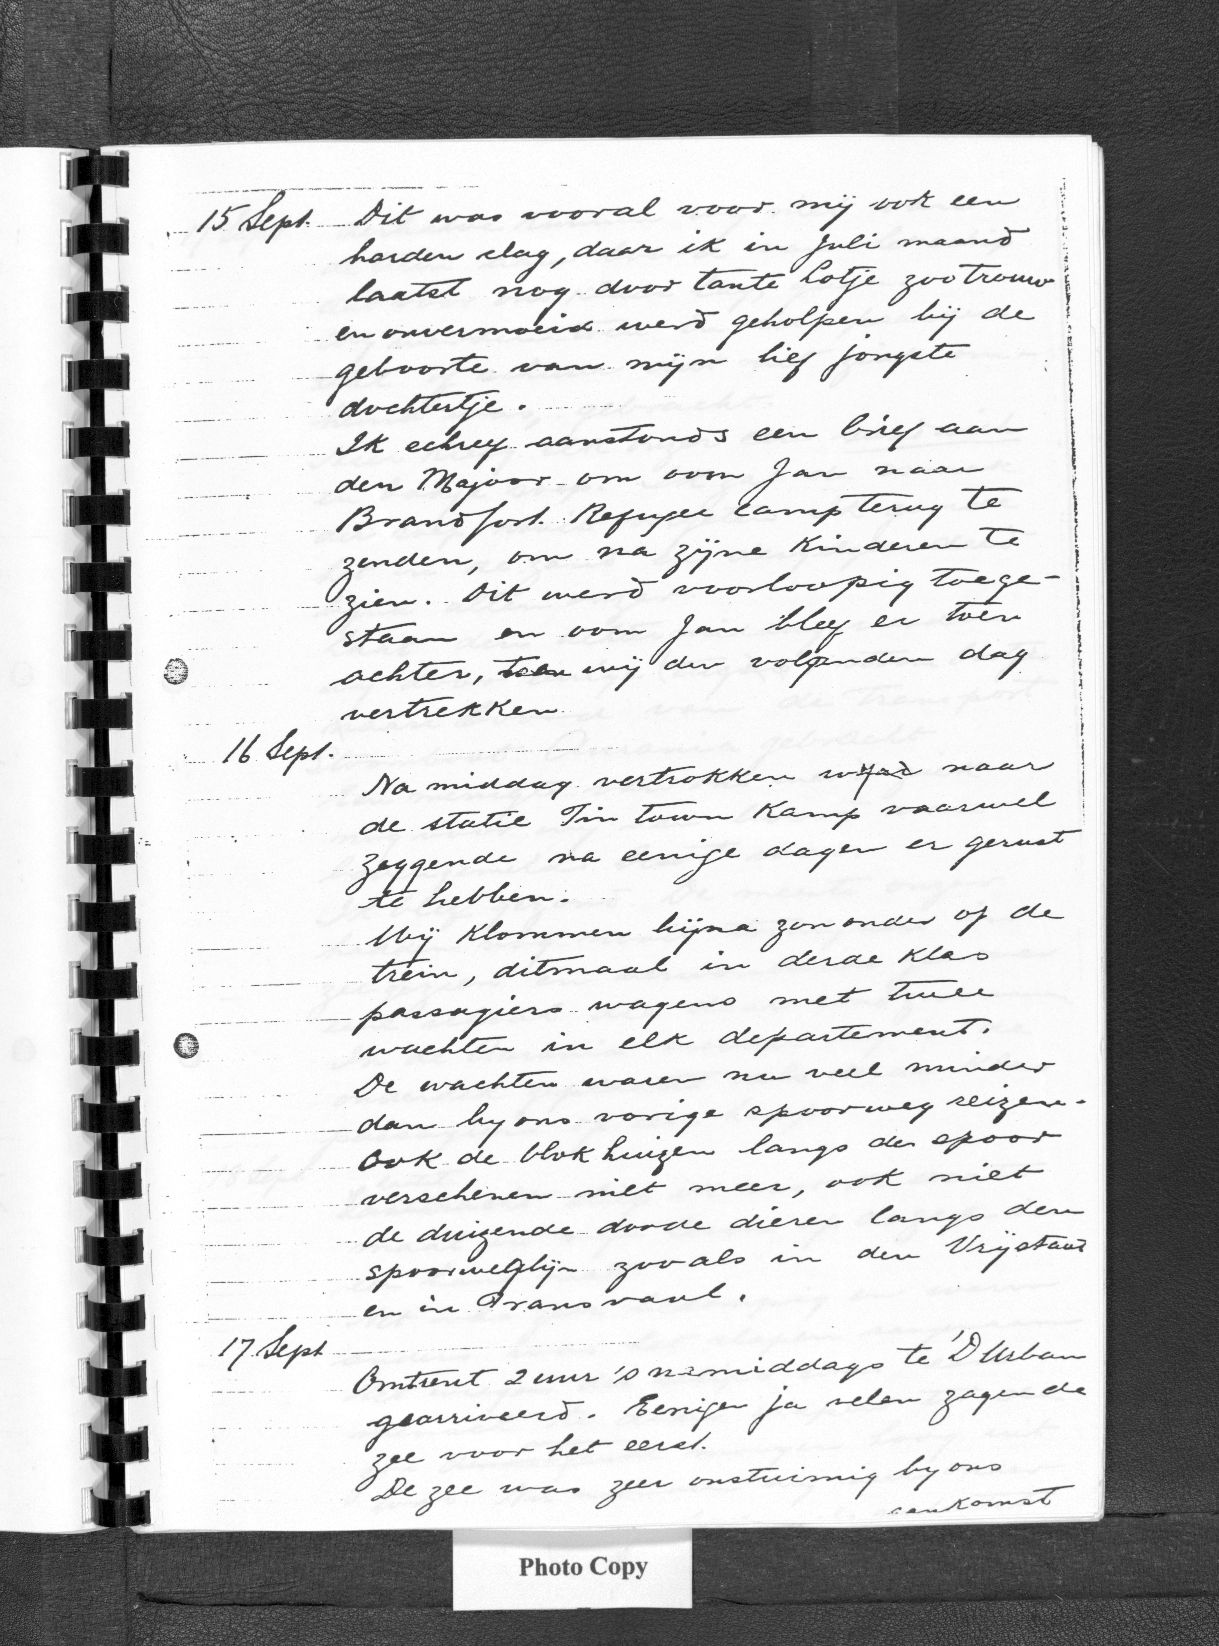 15 Sept. Dit was vooral voor mij ook een
harden slag, daar ik in Juli maand
laatst nog door tante Lotje zoo trouw
en onvermoeid werd geholpen bij de
geboorte van mijn lief jongste
dochtertje.
Ik schreef aanstonds een brief aan
den Majoor om oom Jan naar
Brandfort Refugee camp terug te
zenden, om na zijne Kinderen te
zien. Dit werd voorloopig toege-
staan en oom Jan bleef er toen
achter, toen wij den volgenden dag
vertrekken
16 Sept.
Na middag vertrokken wij naar
de statie Tin town Kamp vaarwel
zeggende na eenige dagen er gerust
te hebben.
Wij Klommen bijna zononder op de
trein, ditmaal in derde Klas
passagiers wagens met twee
wachten in elk departement.
De wachten waren nu veel minder
dan by ons vorige spoorweg reizen.
Ook de blokhuizen langs den spoor
verschenen niet meer, ook niet
de duizende doode dieren langs den
spoorweglijn zooals in den Vrijstaat
en in Transvaal.
17 Sept
Omtrent 2 uur 's namiddags te 'D Urban
gearriveerd. Eenigen ja velen zagen de
zee voor het eerst.
De zee was zeer onstuimig by ons
aankomst
Photo Copy